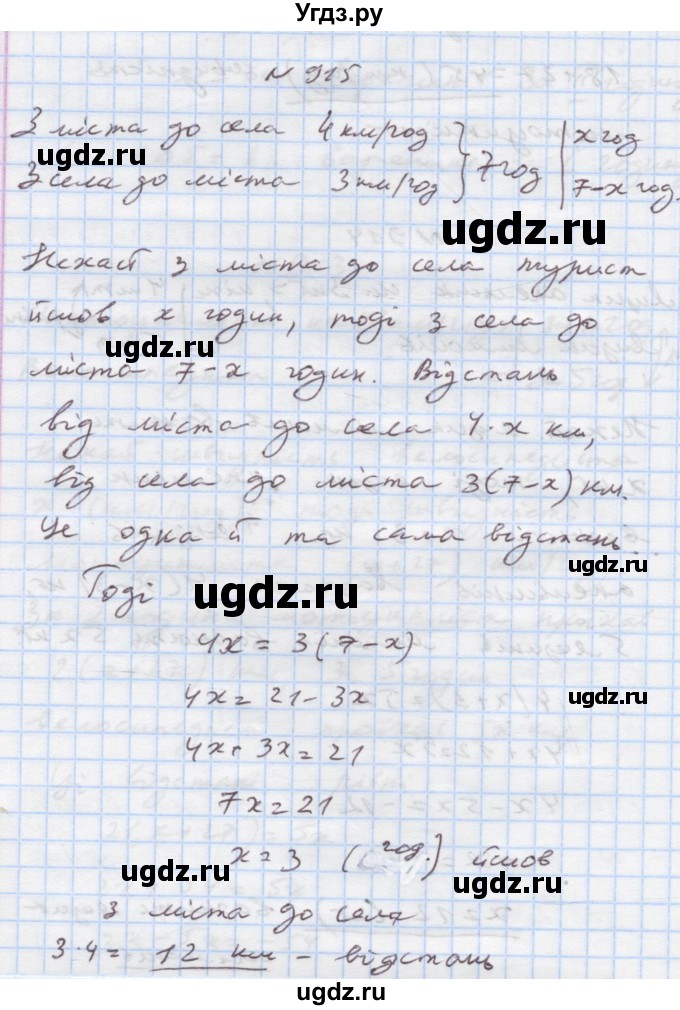 Угдз.ру
N 915
З міста до села 4 км/год } 7 год | x год
ugdz.ru
З села до міста 3 км/год } 7-x год.
ugdz.ru
Нехай з міста до села турист
йшов x годин, тоді з села до
ugdz.ru
міста 7-x годин. Відстань
від міста до села 4·x км,
від села до міста 3(7-x) км.
Це одна й та сама відстань.
ugdz.ru
Тоді ugdz.ru
4x = 3(7-x)
4x = 21-3x
ugdz.ru
4x+3x=21
7x=21
x=3 (год.) йшов
ugdz.ru ugdz.ru
з міста до села
3·4= 12 км - відстань
ugdz.ru